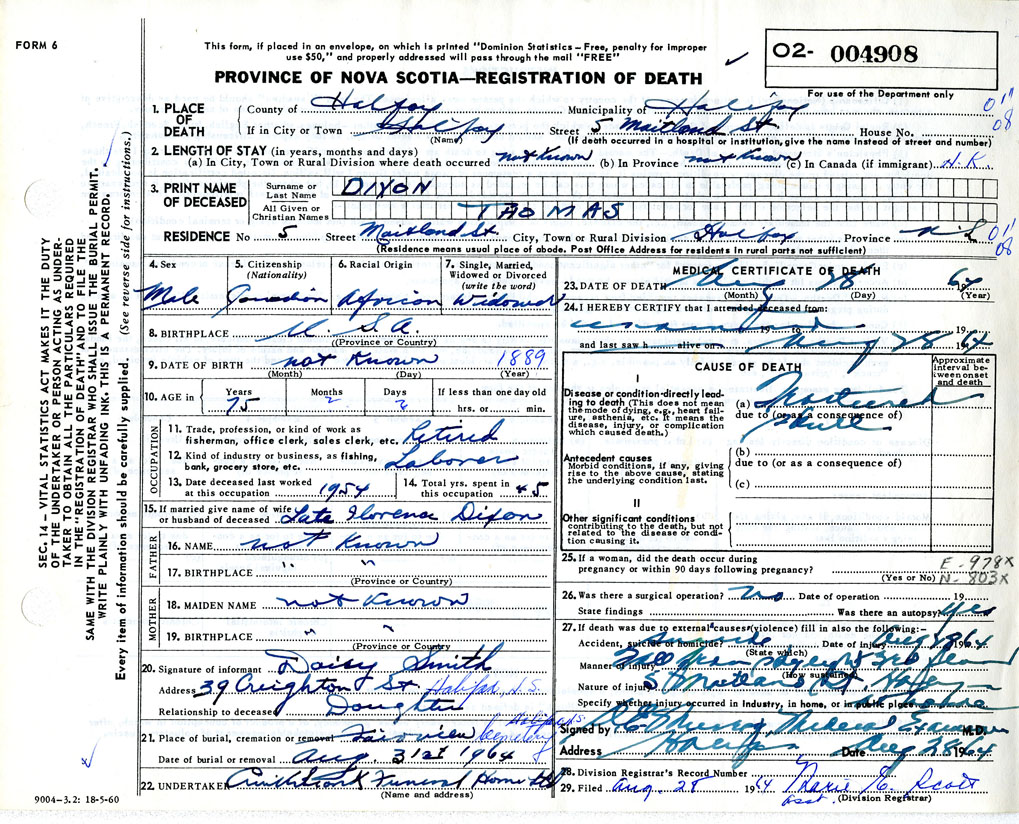 FORM 6
This form, if placed in an envelope, on which is printed "Dominion Statistics – Free, penalty for improper
use $50," and properly addressed will pass through the mail "FREE"
PROVINCE OF NOVA SCOTIA—REGISTRATION OF DEATH
02- 004908
For use of the Department only
1. PLACE OF DEATH
County of Halifax Municipality of Halifax 011
If in City or Town Halifax Street 5 Maitland St House No. 08
(Name) (If death occurred in a hospital or institution, give the name instead of street and number)
2. LENGTH OF STAY (in years, months and days)
(a) In City, Town or Rural Division where death occurred not Known (b) In Province not Known (c) In Canada (if immigrant) N.K.
3. PRINT NAME OF DECEASED
Surname or Last Name DIXON
All Given or Christian Names THOMAS
RESIDENCE No 5 Street Maitland St. City, Town or Rural Division Halifax Province N.S. 011
(Residence means usual place of abode. Post Office Address for residents in rural parts not sufficient) 08
4. Sex Male
5. Citizenship (Nationality) Canadian
6. Racial Origin African
7. Single, Married, Widowed or Divorced (write the word) Widowed
8. BIRTHPLACE U. S. A.
(Province or Country)
9. DATE OF BIRTH not Known 1889
(Month) (Day) (Year)
10. AGE in Years 75 Months ? Days ? If less than one day old hrs. or min.
OCCUPATION
11. Trade, profession, or kind of work as
fisherman, office clerk, sales clerk, etc. Retired
12. Kind of industry or business, as fishing,
bank, grocery store, etc. Laborer
13. Date deceased last worked at this occupation 1954
14. Total yrs. spent in this occupation 45
15. If married give name of wife or husband of deceased Late Florence Dixon
FATHER
16. NAME not Known
17. BIRTHPLACE " "
(Province or Country)
MOTHER
18. MAIDEN NAME not Known
19. BIRTHPLACE " "
(Province or Country)
20. Signature of informant Daisy Smith
Address 39 Creighton St Halifax, N.S.
Relationship to deceased Daughter
21. Place of burial, cremation or removal Fairview Cemetery Halifax N.S.
Date of burial or removal Aug. 31st 1964
22. UNDERTAKER Cruikshank Funeral Home Ltd
(Name and address)
9004-3.2: 18-5-60
MEDICAL CERTIFICATE OF DEATH
23. DATE OF DEATH Aug 28 1964
(Month) (Day) (Year)
24. I HEREBY CERTIFY that I attended deceased from:
examined 19 to 19
and last saw h alive on Aug 28 1964
CAUSE OF DEATH
Approximate interval between onset and death
I
Disease or condition directly leading to death (This does not mean
the mode of dying, e.g., heart failure, asthenia, etc. It means the
disease, injury, or complication which caused death.)
(a) Fractured
due to (or as a consequence of)
Skull
Antecedent causes
Morbid conditions, if any, giving rise to the above cause, stating the underlying condition last.
(b)
due to (or as a consequence of)
(c)
II
Other significant conditions
contributing to the death, but not related to the disease or condition causing it.
25. If a woman, did the death occur during
pregnancy or within 90 days following pregnancy?
(Yes or No)
E - 978X
N - 803X
26. Was there a surgical operation? no Date of operation 19
State findings Was there an autopsy? Yes
27. If death was due to external causes (violence) fill in also the following:–
Accident, suicide or homicide? Suicide Date of injury Aug 28 1964
(State which)
Manner of injury
(How sustained)
Nature of injury 5 Maitland St. Halifax
Specify whether injury occurred in Industry, in home, or in public place
Signed by Murray, Medical Examiner M.D.
Address Halifax Date Aug 28 1964
28. Division Registrar's Record Number
29. Filed Aug. 28 1964 Marie E. Scott
asst. (Division Registrar)
SEC. 14 – VITAL STATISTICS ACT MAKES IT THE DUTY
OF THE UNDERTAKER OR PERSON ACTING AS UNDER-
TAKER TO OBTAIN ALL THE PARTICULARS REQUIRED
IN THE "REGISTRATION OF DEATH" AND TO FILE THE
SAME WITH THE DIVISION REGISTRAR WHO SHALL ISSUE THE BURIAL PERMIT.
WRITE PLAINLY WITH UNFADING INK. THIS IS A PERMANENT RECORD.
Every item of information should be carefully supplied. (See reverse side for instructions.)